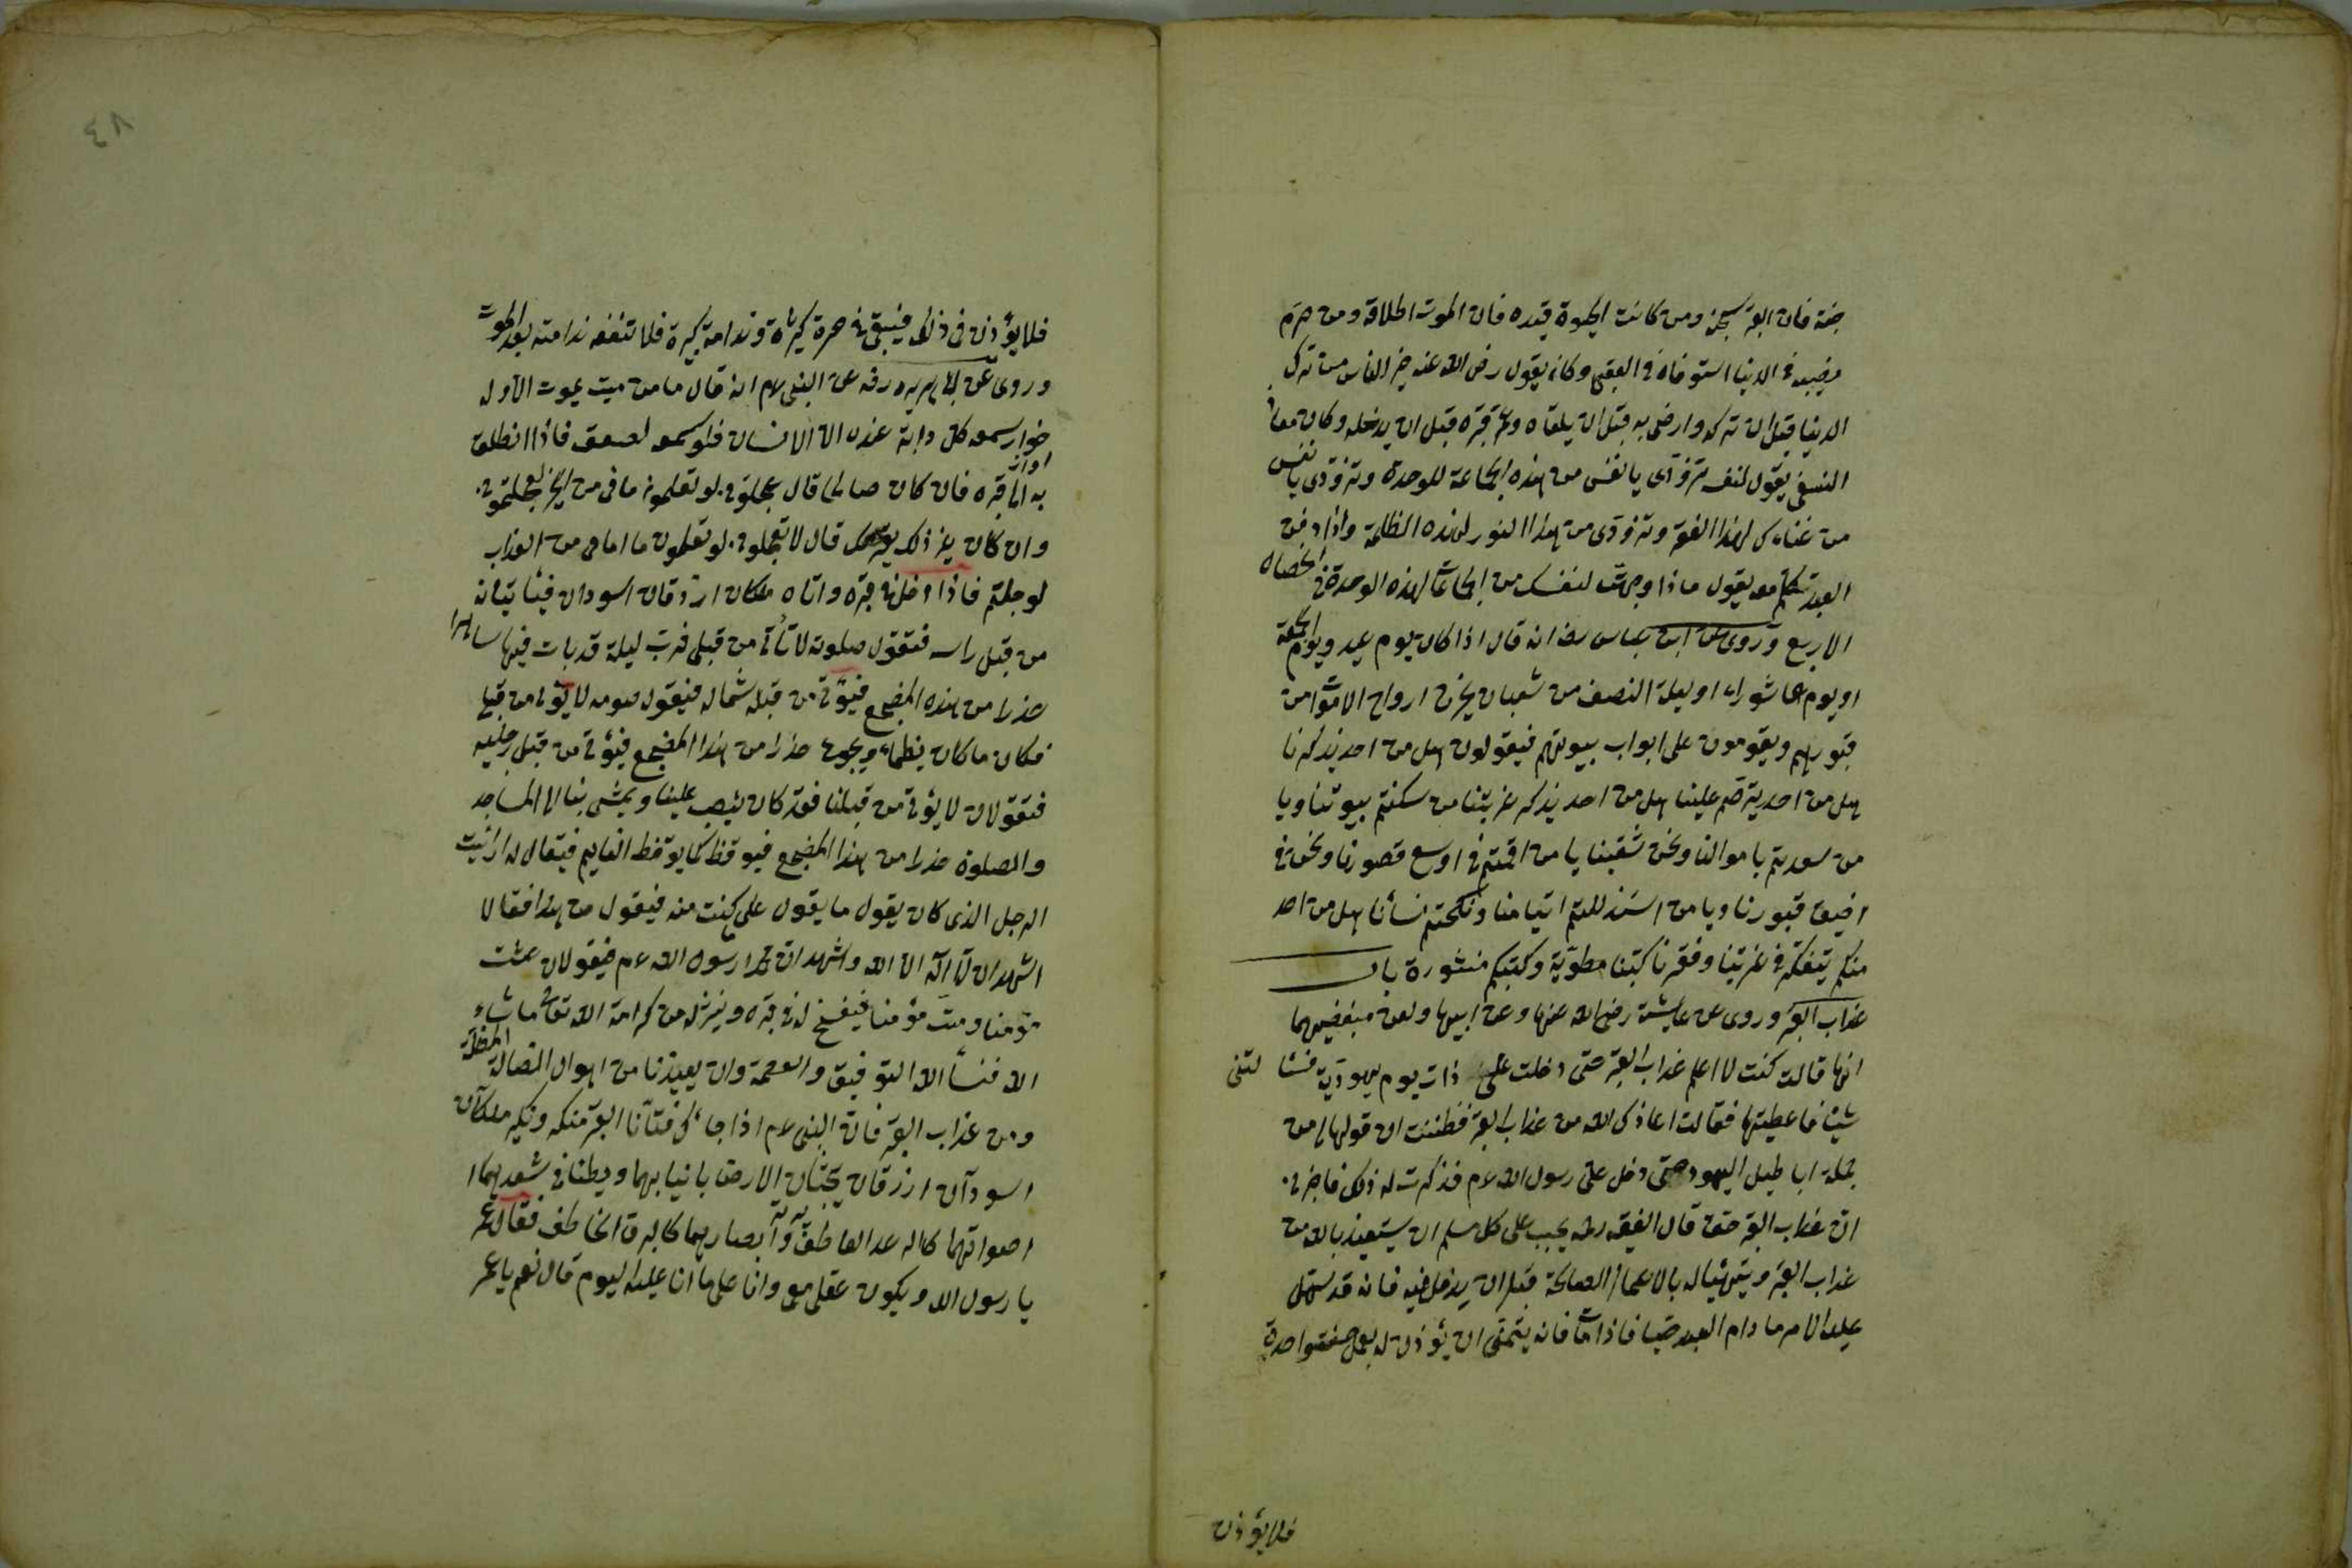 جنة فان القبر سجنه ومن كانت الحيوة قيده فان الموت اطلاقه ومن حرم
نصيبه فى الدنيا استوفاه فى العقبى وكان يقول رضى الله عنه خير الناس من ترك
الدنيا قبل ان تتركه وارضى ربه قبل ان يلقاه وعمر قبره قبل ان يدخله وكان معاذ
النسفى يقول لنفسه تزودى يا نفس من هذه الجماعة للوحدة وتزودى يا نفس
من غناءك لهذا الفقر وتزودى من هذا النور لهذه الظلمة واذا دفن
العبد تكلم معه يقول ماذا وجدت لنفسك من الجماعة لهذه الوحدة فى الخصال
الاربع وروى عن ابن عباس رضه انه قال اذا كان يوم عيد ويوم الجمعة
او يوم عاشوراء او ليلة النصف من شعبان يخرج ارواح الاموات من
قبورهم ويقومون على ابواب بيوتهم فيقولون هل من احد يذكرنا
هل من احد يترحم علينا هل من احد يذكر غربتنا من سكنتم بيوتنا ويا
من سعدتم باموالنا ونحن شقينا يا من اقمتم فى اوسع قصورنا ونحن فى
اضيق قبورنا ويا من استذللتم ايتامنا ونكحتم نسائنا هل من احد
منكم يتفكر فى غربتنا وفقرنا كتبنا مطوية وكتبكم منشورة باب
عذاب القبر وروى عن عايشة رضى الله عنها وعن ابيها ولعن مبغضيهما
انها قالت كنت لا اعلم عذاب القبر حتى دخلت على ذات يوم يهودية فسئا لتنى
شيئا فاعطيتها فقالت اعاذك الله من عذاب القبر فظننت ان قولها من
جملة اباطيل اليهود حتى دخل على رسول الله عم فذكرت له ذلك فاخبرنى
ان عذاب القبر حق قال الفقيه رحمه يجب على كل مسلم ان يستعيذ بالله من
عذاب القبر ويتهيئا له بالاعمال الصالحة قبل ان يدخل فيه فانه قد سهل
عليه الامر ما دام العبد حيا فاذا مات فانه يتمنى ان يؤذن له بعمل حسنة واحدة
فلا يؤذن
٤٨
فلا يؤذن فى ذلك فيبقى فى حسرة كثيرة وندامة كبيرة فلا تنفعه ندامته بعد الموت
وروى عن ابى هريره رفه عن النبى عم انه قال ما من ميت يموت الا وله
خوار يسمعه كل دابة عنده الا الانسان فلو سمعه لصعق فاذا انطلق
به الى قبره فان كان صالحا قال عجلونى لو تعلمون ما فى من الخير لعجلتمونى
وان كان غير ذلك قال لا تعجلونى لو تعلمون ما امامى من العذاب
لو جلتم فاذا ادخل فى قبره واتاه ملكان ازرقان اسودان فيئاتيانه
من قبل راسه فتقول صلوته لا تأتى من قبلى فرب ليلة قد بات فيها ساهرا
حذرا من هذه المضجع فيؤتى من قبل شماله فيقول صومه لا يؤتى من قبلى
فكان ما كان يظماء ويجوع حذرا من هذا المضجع فيؤتى من قبل رجليه
فتقولان لا يؤتى من قبلنا فقد كان ينصب علينا ويمشى بنا الى المساجد
والصلوة حذرا من هذا المضجع فيوقظ كما يوقظ النايم فيقال له ارائيت
الرجل الذى كان يقول ما يقول على كنت منه فيقول من هذا فقالا
اشهد ان لا اله الا الله واشهد ان محمدا رسول الله عم فيقولان عشت
مؤمنا ومت مؤمنا فيفسخ له فى قبره وينزله من كرامة الله تعالى ما شاء
الله فنسأ الله التوفيق والعصمة وان يعيذنا من اهوال الضالة المضلة
ومن عذاب القبر فان النبى عم اذا جاءك فتانا القبر منكر ونكير ملكان
اسودان ازرقان يبحثان الارض بانيابهما ويطئان فى شعرهما
اصواتهما كالرعد القاطف وابصارهما كالبرق الخاطف فقال عمر
يا رسول الله ويكون عقلى معى وانا على ما انا عليه اليوم قال نعم يا عمر